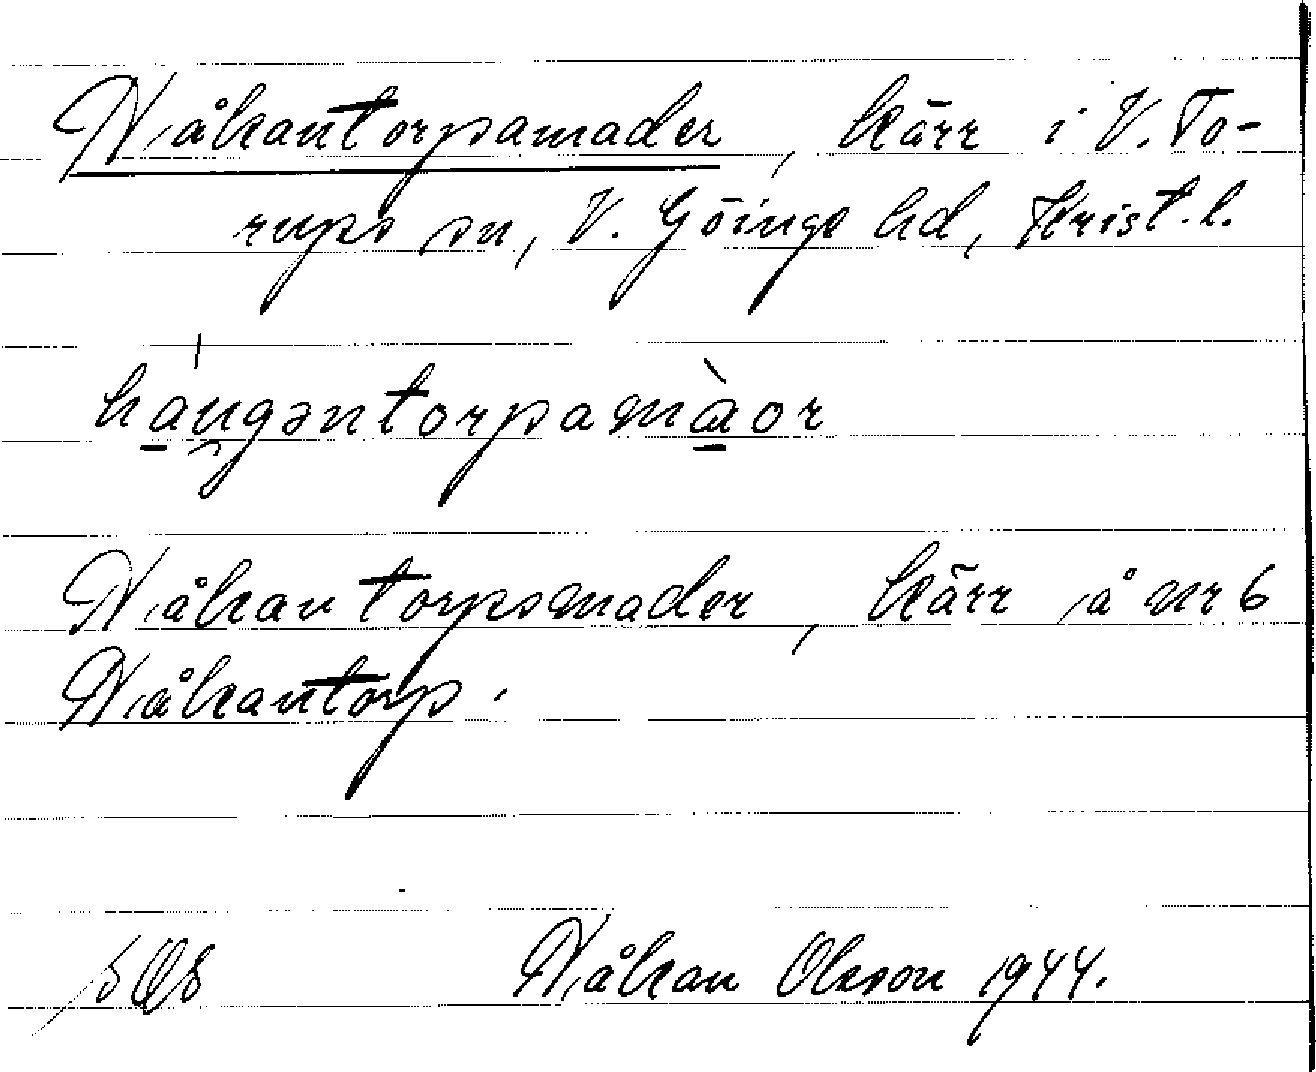 Håkantorpamader, kärr i V. To-
rups sn, V. Göinge hd, Krist. l.
hángəntorpamàor
Håkantorpsmader, kärr å nr 6
Håkantorp.
Håkan Olsson 1944.